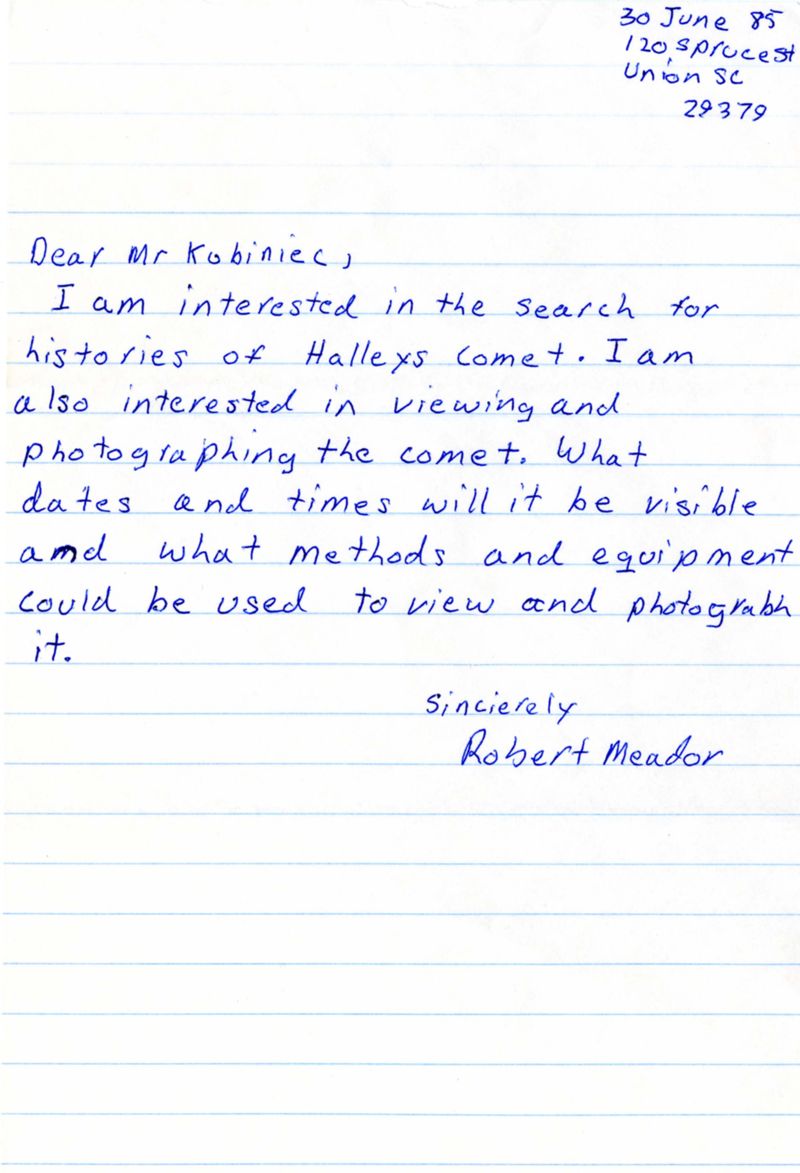 30 June 85
120 Spruce St
Union SC
29379
Dear Mr Kobiniec,
I am interested in the search for
histories of Halleys Comet. I am
also interested in viewing and
photographing the comet. What
dates and times will it be visible
and what methods and equipment
could be used to view and photograbh
it.
Sincierely
Robert Meador